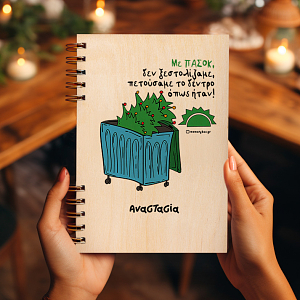 Με ΠΑΣΟΚ,
δεν ξεστολίζαμε,
πετούσαμε το δέντρο
όπως ήταν!
Αναστασία